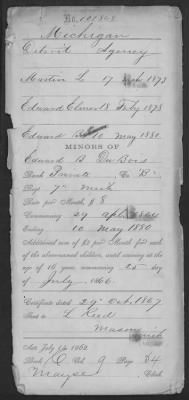 No. 101808
Michigan
Detroit Agency
Martin L 17 1873
Edward Elmer 18 Feby 1878
Edward 10 May 1880
MINORS OF
Edward B DuBois
Rank Private Co "B"
Regt 7" Mich
Rate per Month $8
Commencing 29 April 1864
Ending 10 May 1880
Additional sum of $2 per Month for each
of the above-named children, until arriving at the
age of 16 years, commencing 25 day
of July 1866.
Certificate dated 29" Oct. 1867
Sent to L Reed
Mason Mich
Act July 14 1862
Book C Vol 9 Page 84
Mayse Clerk